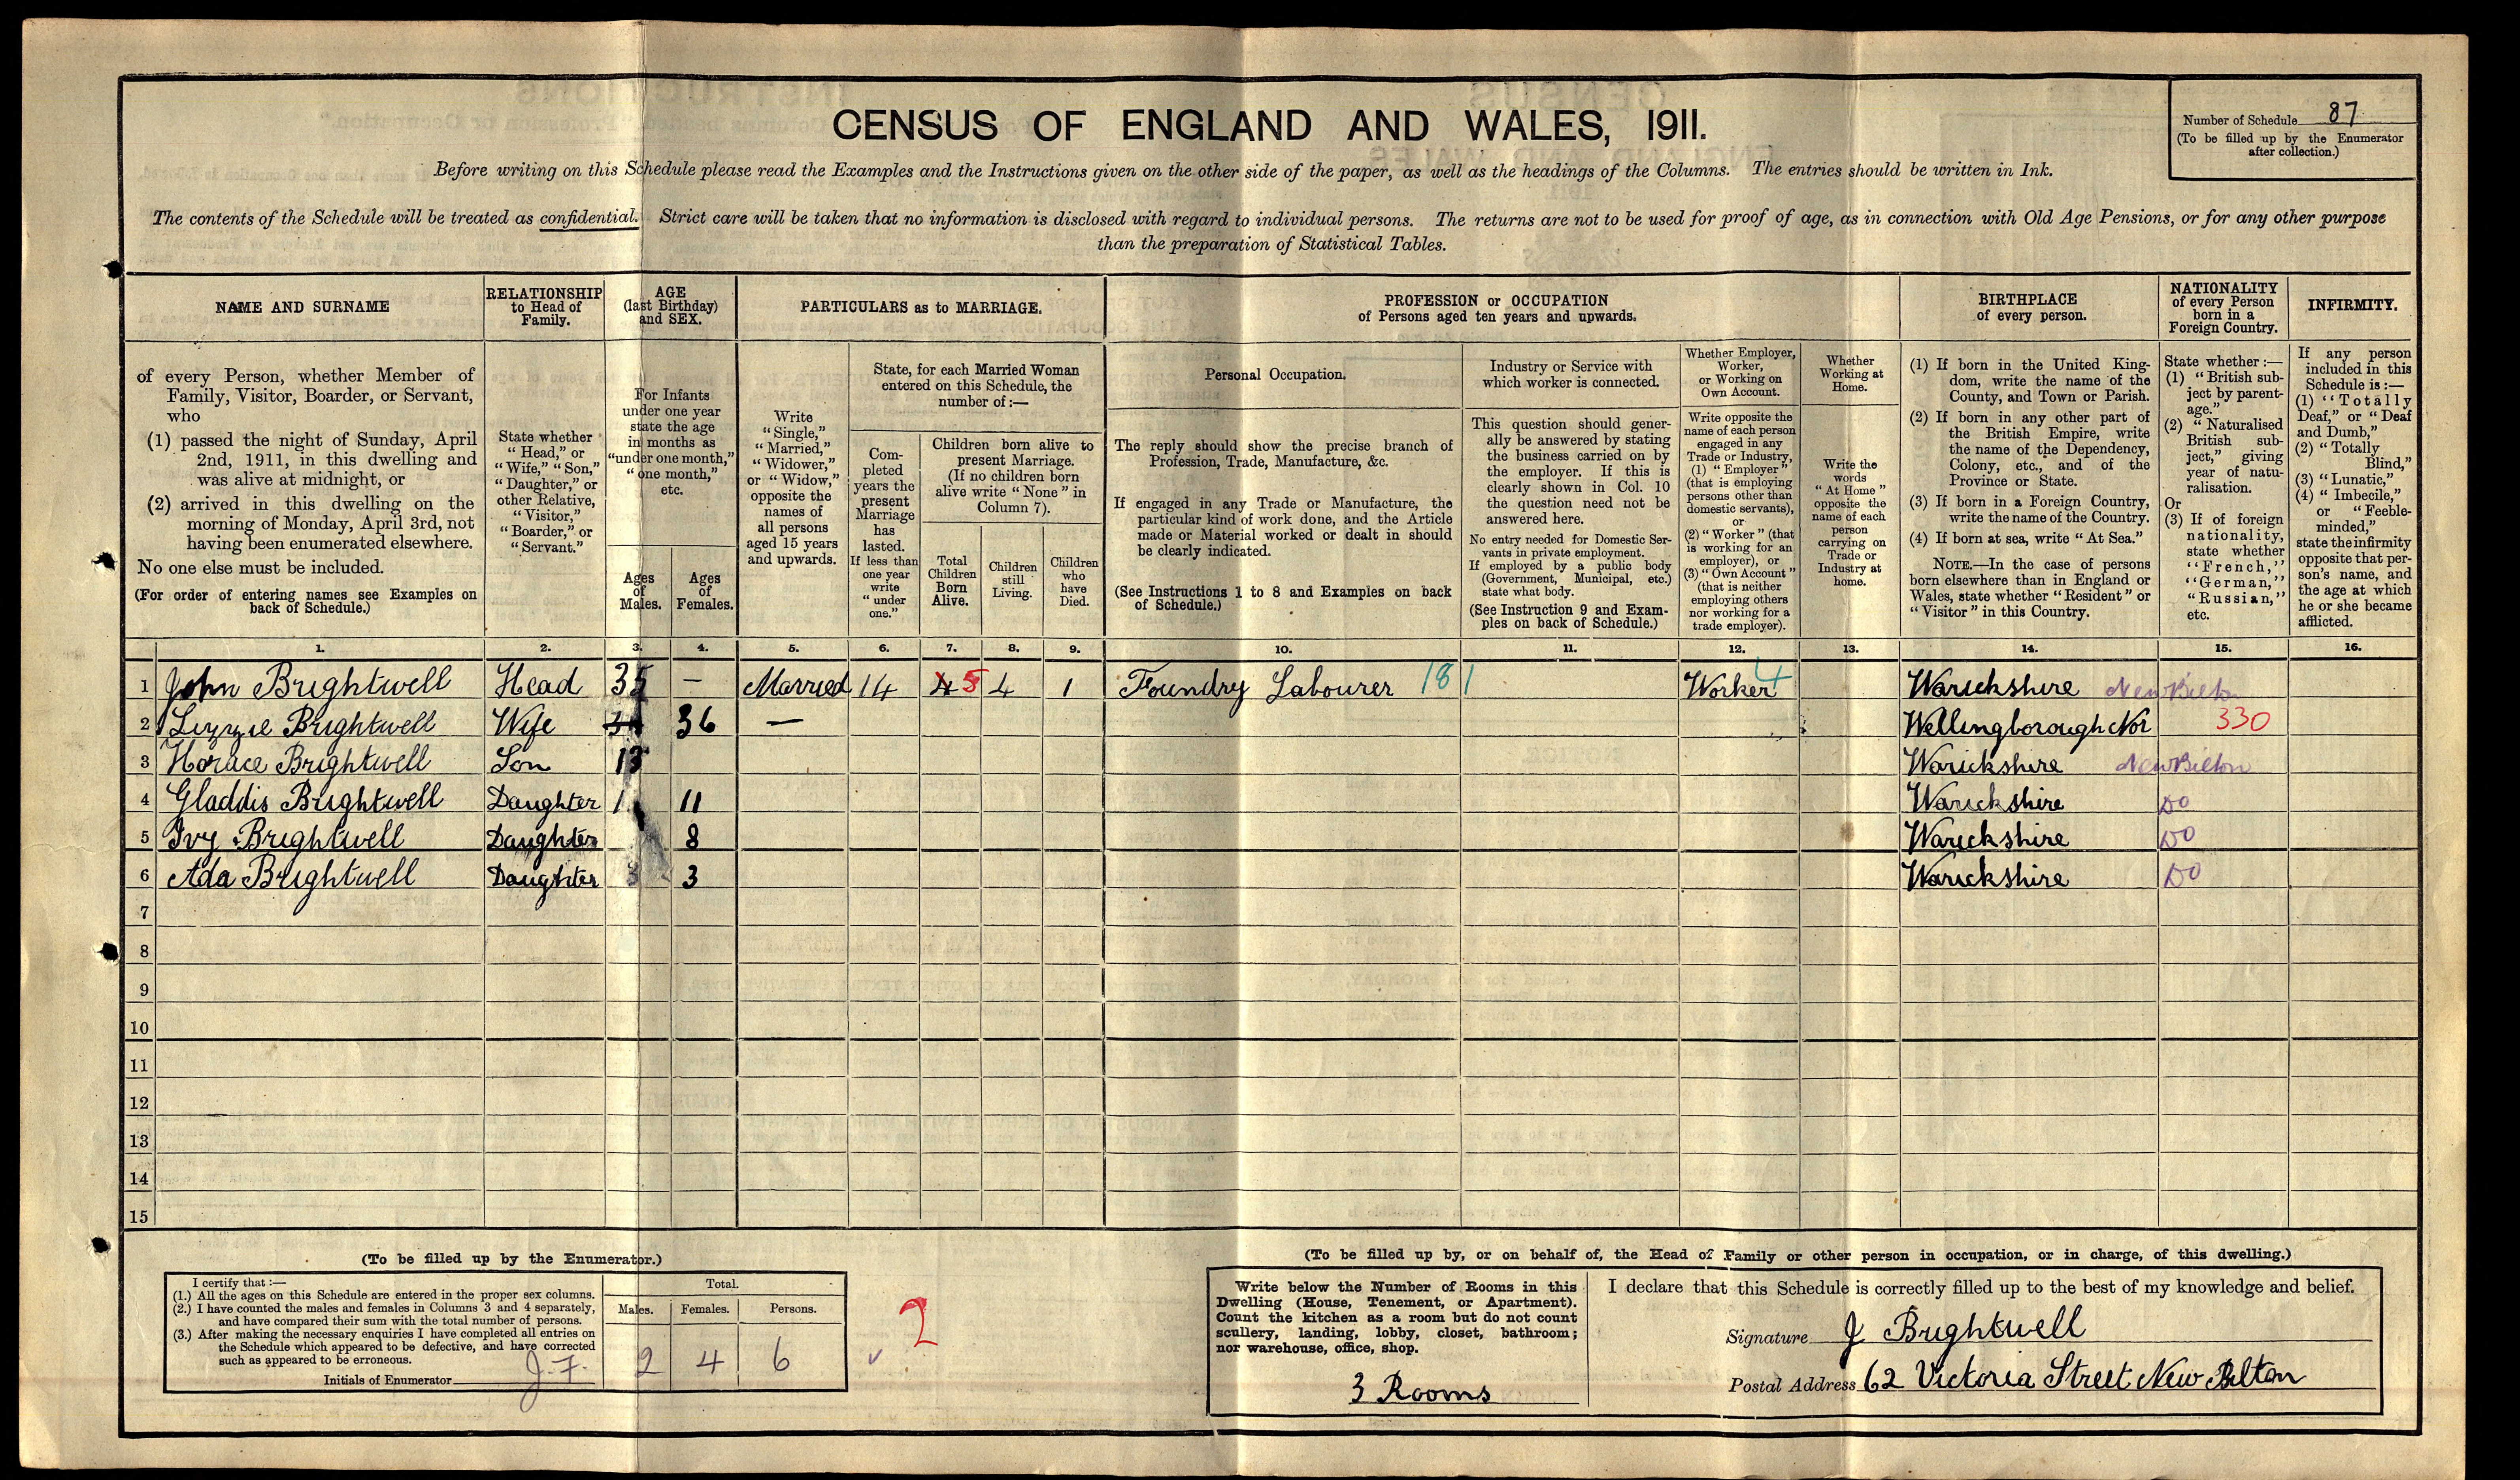 CENSUS OF ENGLAND AND WALES, 1911.
Number of Schedule 87
(To be filled up by the Enumerator
after collection.)
Before writing on this Schedule please read the Examples and the Instructions given on the other side of the paper, as well as the headings of the Columns. The entries should be written in Ink.
The contents of the Schedule will be treated as confidential. Strict care will be taken that no information is disclosed with regard to individual persons. The returns are not to be used for proof of age, as in connection with Old Age Pensions, or for any other purpose
than the preparation of Statistical Tables.
NAME AND SURNAME
of every Person, whether Member of
Family, Visitor, Boarder, or Servant,
who
(1) passed the night of Sunday, April
2nd, 1911, in this dwelling and
was alive at midnight, or
(2) arrived in this dwelling on the
morning of Monday, April 3rd, not
having been enumerated elsewhere.
No one else must be included.
(For order of entering names see Examples on
back of Schedule.)
RELATIONSHIP
to Head of
Family.
State whether
"Head," or
"Wife," "Son,"
"Daughter," or
other Relative,
"Visitor,"
"Boarder," or
"Servant."
AGE
(last Birthday)
and SEX.
For Infants
under one year
state the age
in months as
"under one month,"
"one month,"
etc.
Ages
of
Males.
Ages
of
Females.
PARTICULARS as to MARRIAGE.
Write
"Single,"
"Married,"
"Widower,"
or "Widow,"
opposite the
names of
all persons
aged 15 years
and upwards.
State, for each Married Woman
entered on this Schedule, the
number of :—
Com-
pleted
years the
present
Marriage
has
lasted.
If less than
one year
write
"under
one."
Children born alive to
present Marriage.
(If no children born
alive write "None" in
Column 7).
Total
Children
Born
Alive.
Children
still
Living.
Children
who
have
Died.
PROFESSION or OCCUPATION
of Persons aged ten years and upwards.
Personal Occupation.
The reply should show the precise branch of
Profession, Trade, Manufacture, &c.
If engaged in any Trade or Manufacture, the
particular kind of work done, and the Article
made or Material worked or dealt in should
be clearly indicated.
(See Instructions 1 to 8 and Examples on back
of Schedule.)
Industry or Service with
which worker is connected.
This question should gener-
ally be answered by stating
the business carried on by
the employer. If this is
clearly shown in Col. 10
the question need not be
answered here.
No entry needed for Domestic Ser-
vants in private employment.
If employed by a public body
(Government, Municipal, etc.)
state what body.
(See Instruction 9 and Exam-
ples on back of Schedule.)
Whether Employer,
Worker,
or Working on
Own Account.
Write opposite the
name of each person
engaged in any
Trade or Industry,
(1) "Employer"
(that is employing
persons other than
domestic servants),
or
(2) "Worker" (that
is working for an
employer), or
(3) "Own Account"
(that is neither
employing others
nor working for a
trade employer).
Whether
Working at
Home.
Write the
words
"At Home"
opposite the
name of each
person
carrying on
Trade or
Industry at
home.
BIRTHPLACE
of every person.
(1) If born in the United King-
dom, write the name of the
County, and Town or Parish.
(2) If born in any other part of
the British Empire, write
the name of the Dependency,
Colony, etc., and of the
Province or State.
(3) If born in a Foreign Country,
write the name of the Country.
(4) If born at sea, write "At Sea."
NOTE.—In the case of persons
born elsewhere than in England or
Wales, state whether "Resident" or
"Visitor" in this Country.
NATIONALITY
of every Person
born in a
Foreign Country.
State whether :—
(1) "British sub-
ject by parent-
age."
(2) "Naturalised
British sub-
ject," giving
year of natu-
ralisation.
Or
(3) If of foreign
nationality,
state whether
"French,"
"German,"
"Russian,"
etc.
INFIRMITY.
If any person
included in this
Schedule is :—
(1) "Totally
Deaf," or "Deaf
and Dumb,"
(2) "Totally
Blind,"
(3) "Lunatic,"
(4) "Imbecile,"
or "Feeble-
minded,"
state the infirmity
opposite that per-
son's name, and
the age at which
he or she became
afflicted.
1. 2. 3. 4. 5. 6. 7. 8. 9. 10. 11. 12. 13. 14. 15. 16.
1 John Brightwell Head 35 — Married 14 4 5 4 1 Foundry Labourer 181 Worker 4 Warickshire New Bilton
2 Lizzie Brightwell Wife 36 — Wellingborough Nor 330
3 Horace Brightwell Son 13 Warickshire New Bilton
4 Gladdis Brightwell Daughter 11 Warickshire Do
5 Ivy Brightwell Daughter 8 Warickshire Do
6 Ada Brightwell Daughter 3 3 Warickshire Do
7
8
9
10
11
12
13
14
15
(To be filled up by the Enumerator.)
I certify that :—
(1.) All the ages on this Schedule are entered in the proper sex columns.
(2.) I have counted the males and females in Columns 3 and 4 separately,
and have compared their sum with the total number of persons.
(3.) After making the necessary enquiries I have completed all entries on
the Schedule which appeared to be defective, and have corrected
such as appeared to be erroneous.
Initials of Enumerator J. F.
Total.
Males. Females. Persons.
2 4 6
2
(To be filled up by, or on behalf of, the Head of Family or other person in occupation, or in charge, of this dwelling.)
Write below the Number of Rooms in this
Dwelling (House, Tenement, or Apartment).
Count the kitchen as a room but do not count
scullery, landing, lobby, closet, bathroom;
nor warehouse, office, shop.
3 Rooms
I declare that this Schedule is correctly filled up to the best of my knowledge and belief.
Signature J Brightwell
Postal Address 62 Victoria Street New Bilton